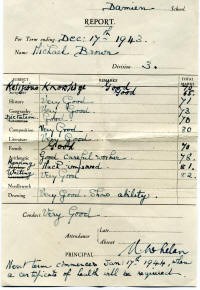 Damien School.
REPORT.
For Term ending Dec: 17th 1943.
Name Michael Brown
Division 3.
SUBJECT REMARKS TOTAL MARKS
Religious Knowledge Good
Good
History Very Good 71
Geography Very Good
Dictation Good 70
Composition Very Good 80
Literature Very Good
French Good 70
Arithmetic Good careful worker 78.
Reading Much improved
Writing Very Good
Needlework
Drawing Very Good. Shows ability.
Conduct Very Good
Attendance
Absent
PRINCIPAL M Whelan
Next term commences Jan: 17th 1944, when
a certificate of health will be required.